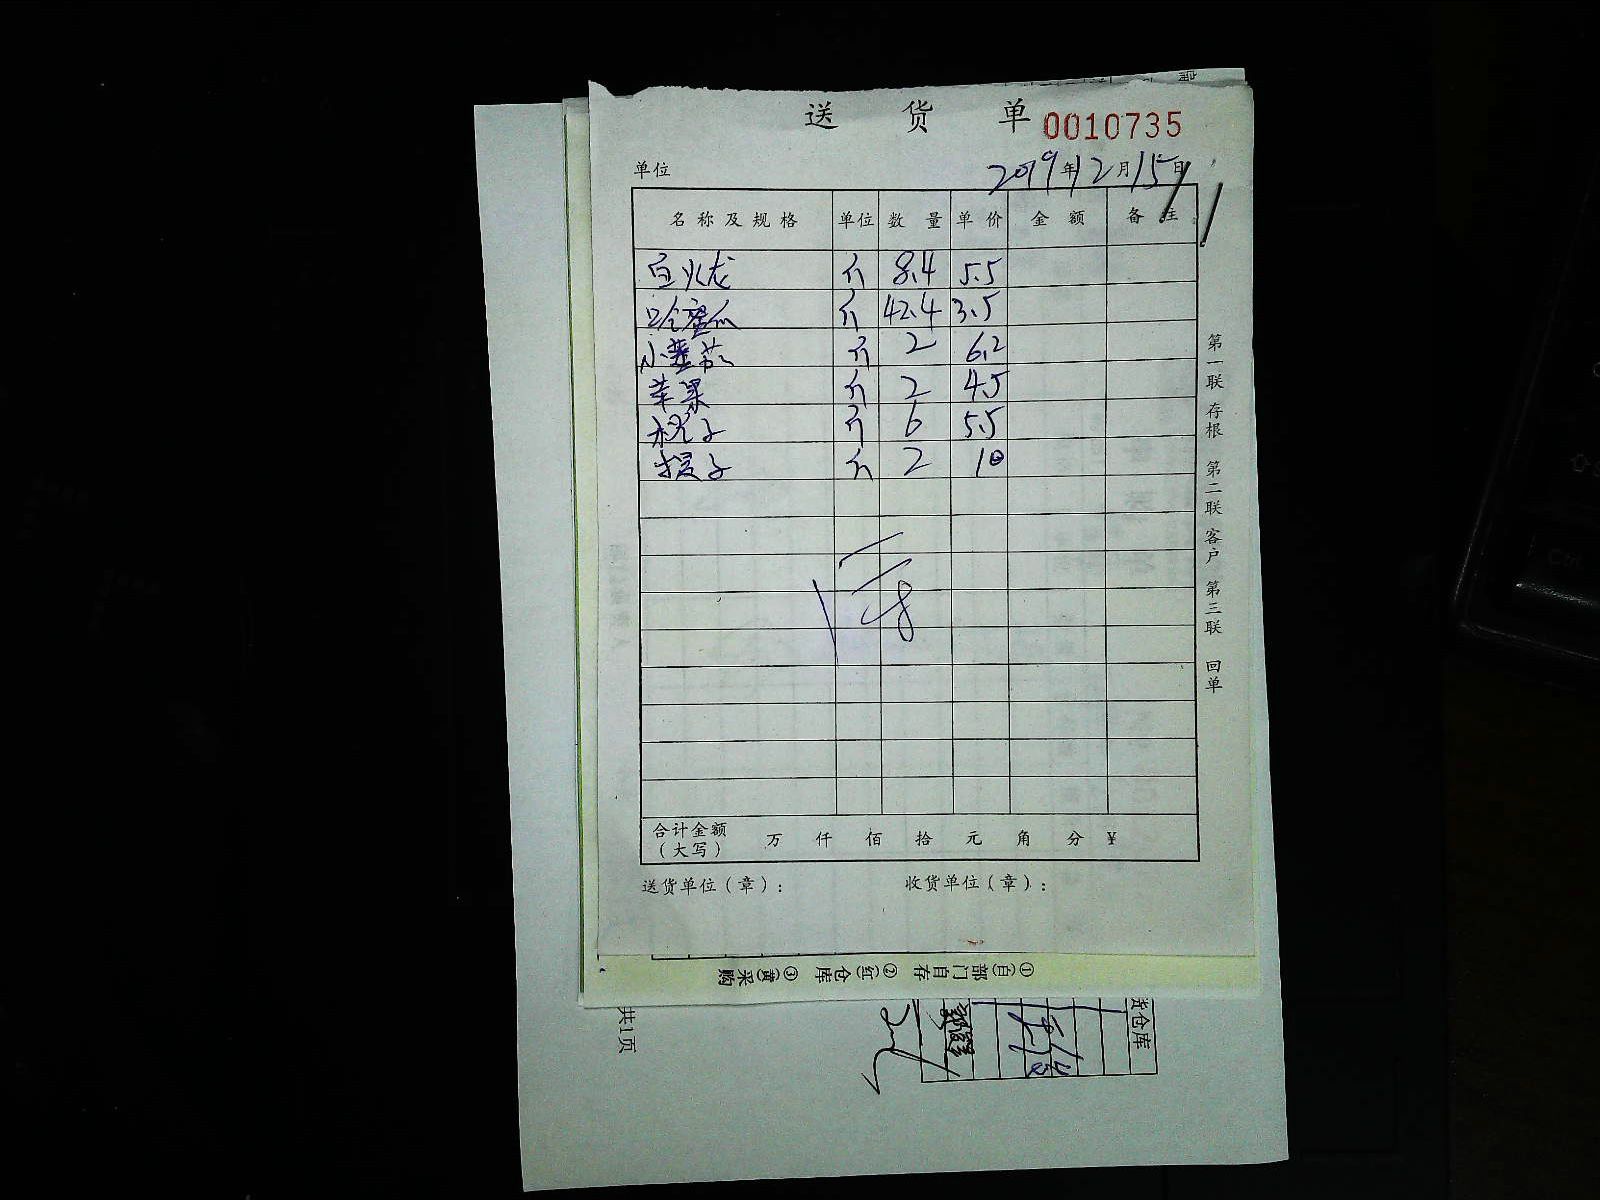 送货单 0010735
单位 2019年12月15日
名称及规格 单位 数量 单价 金额 备注
白火龙 斤 8.4 5.5
哈蜜瓜 斤 42.4 3.5
小蕃茄 斤 2 6.2
苹果 斤 2 4.5
桃子 斤 6 5.5
提子 斤 2 10
合计金额
(大写) 万 仟 佰 拾 元 角 分 ¥
送货单位(章): 收货单位(章):
第一联 存根 第二联 客户 第三联 回单
①(白)部门自存 ②(红)仓库 ③(黄)采购
共1页
货仓库